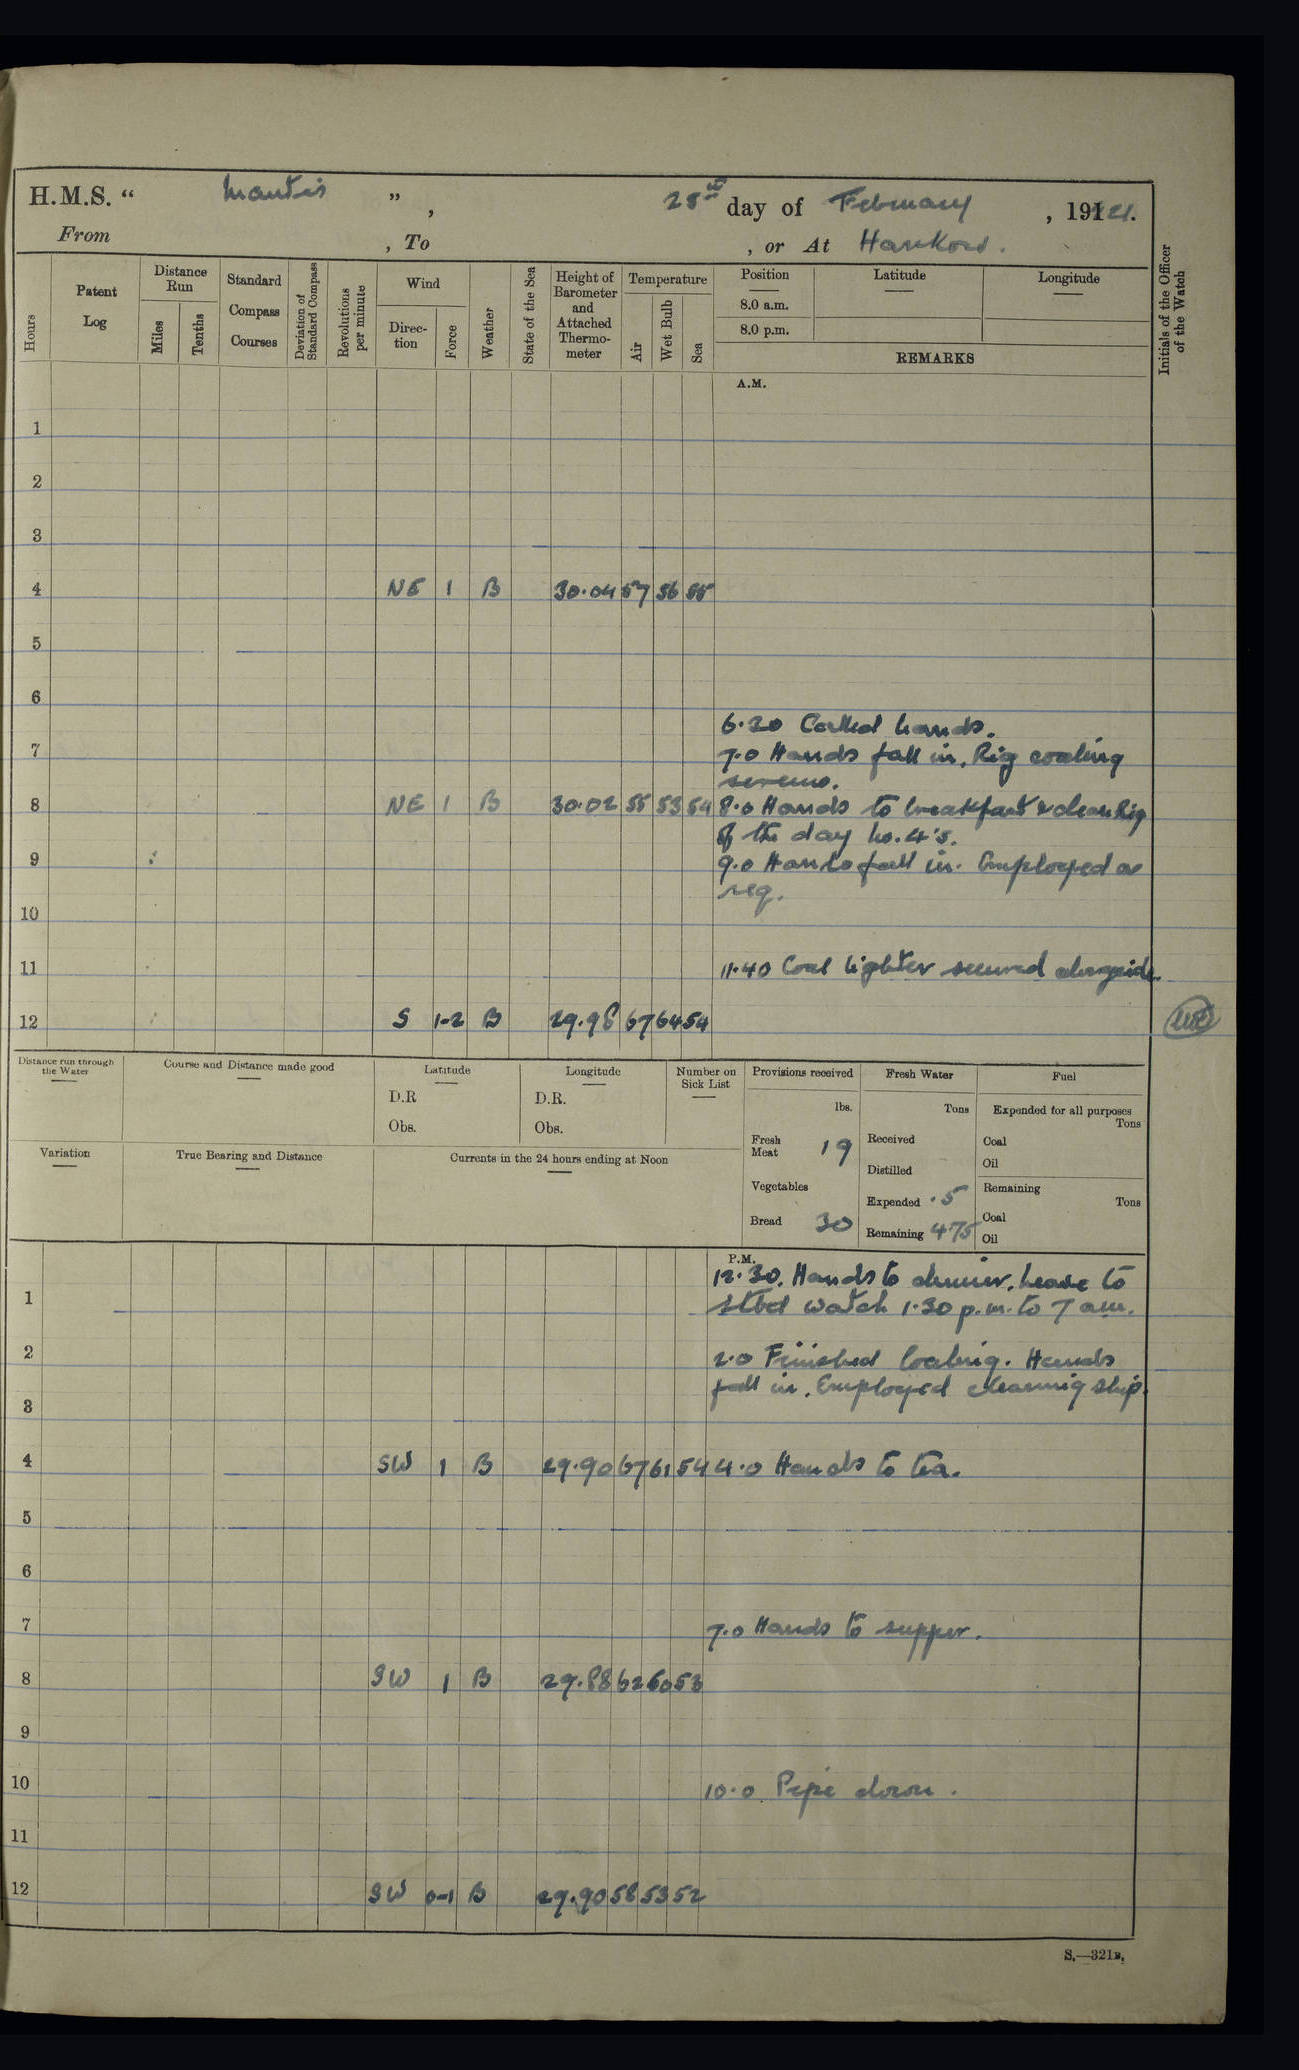 H.M.S. “ Mantis ” , 28th day of February , 1921.
From , To , or At Hankow.
Hours
Patent Log
Distance Run
Miles
Tenths
Standard Compass Courses
Deviation of Standard Compass
Revolutions per minute
Wind
Direc-tion
Force
Weather
State of the Sea
Height of Barometer and Attached Thermo-meter
Temperature
Air
Wet Bulb
Sea
Position
Latitude
Longitude
8.0 a.m.
8.0 p.m.
REMARKS
Initials of the Officer of the Watch
A.M.
1
2
3
4 NE 1 B 30.04 57 56 55
5
6
6.30 Called hands.
7 7.0 Hands fall in. Rig coaling
screens.
8 NE 1 B 30.02 55 53 54 8.0 Hands to breakfast & clean Rig
of the day no. 4's.
9 9.0 Hands fall in. Employed as
req.
10
11 11.40 Coal lighter secured alongside.
12 S 1-2 B 29.98 67 64 54
Distance run through the Water
Course and Distance made good
Latitude
D.R
Obs.
Longitude
D.R.
Obs.
Number on Sick List
Provisions received
lbs.
Fresh Meat 19
Vegetables
Bread 30
Fresh Water
Tons
Received
Distilled
Expended .5
Remaining 475
Fuel
Expended for all purposes
Tons
Coal
Oil
Remaining
Tons
Coal
Oil
Variation
True Bearing and Distance
Currents in the 24 hours ending at Noon
P.M.
12.30. Hands to dinner. Leave to
1 stbd watch 1.30 p.m. to 7 a.m.
2 2.0 Finished Coaling. Hands
fall in. Employed cleaning ship.
3
4 SW 1 B 29.90 67 61 54 4.0 Hands to tea.
5
6
7 7.0 Hands to supper.
8 SW 1 B 29.88 62 60 53
9
10 10.0 Pipe down.
11
12 SW 0-1 B 29.90 58 53 52
S.—321B.